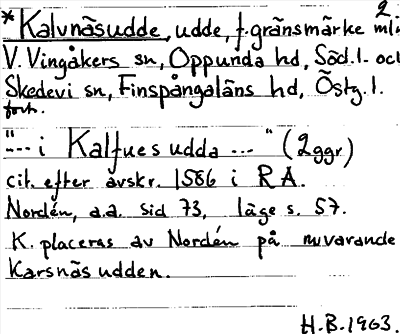 2
*Kalvnäsudde, udde, f. gränsmärke ml.
V. Vingåkers sn, Oppunda hd, Söd.l. och
Skedevi sn, Finspångaläns hd, Östg.l.
fort.
"--- i Kalfues udda --- " (2ggr)
cit. efter avskr. 1586 i RA.
Nordén, a.a. sid 73, läge s. 57.
K. placeras av Nordén på nuvarande
Karsnäsudden.
H.B. 1963.